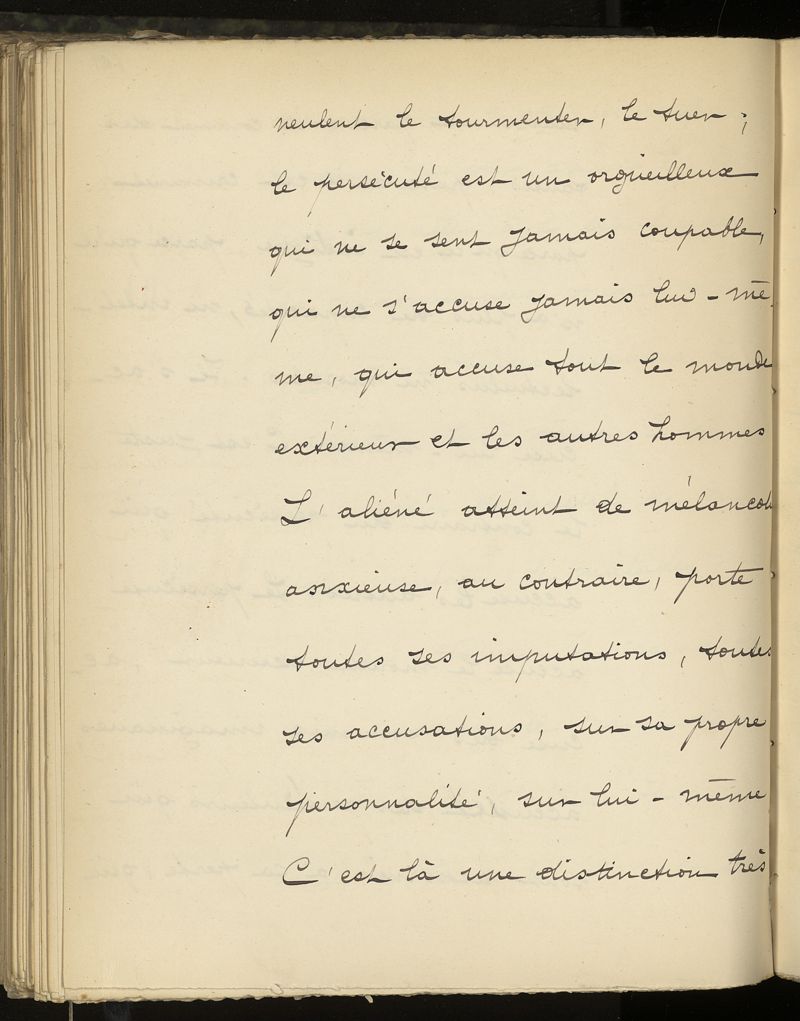 veulent le tourmenter, le tuer ;
le persécuté est un orgueilleux
qui ne se sent jamais coupable,
qui ne s'accuse jamais lui-mê-
me, qui accuse tout le monde
extérieur et les autres hommes
L'aliéné atteint de mélancoli
anxieuse, au contraire, porte
toutes ses imputations, toutes
ses accusations, sur sa propre
personnalité, sur lui-même
C'est là une distinction très